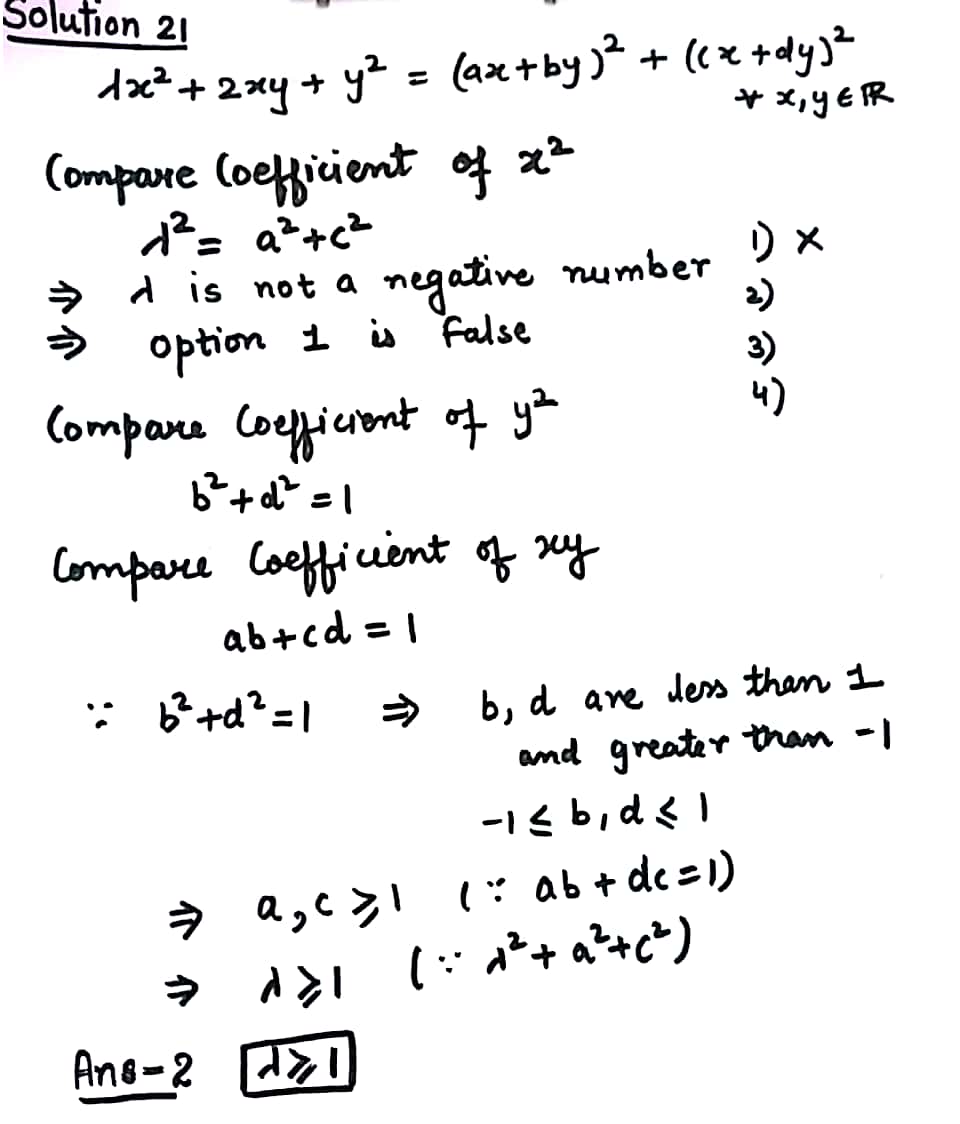 Solution 21
λx² + 2xy + y² = (ax+by)² + ((cx+dy)²
∀ x,y ∈ ℝ
Compare Coefficient of x²
λ² = a²+c²
⇒ λ is not a negative number
⇒ option 1 is false
1) ×
2)
3)
4)
Compare Coefficient of y²
b²+d² = 1
Compare Coefficient of xy
ab+cd = 1
∵ b²+d²=1 ⇒ b, d are less than 1
and greater than -1
-1 ≤ b, d ≤ 1
⇒ a, c ≥ 1 (∵ ab + dc = 1)
⇒ λ ≥ 1 (∵ λ² + a²+c²)
Ans-2 λ ≥ 1